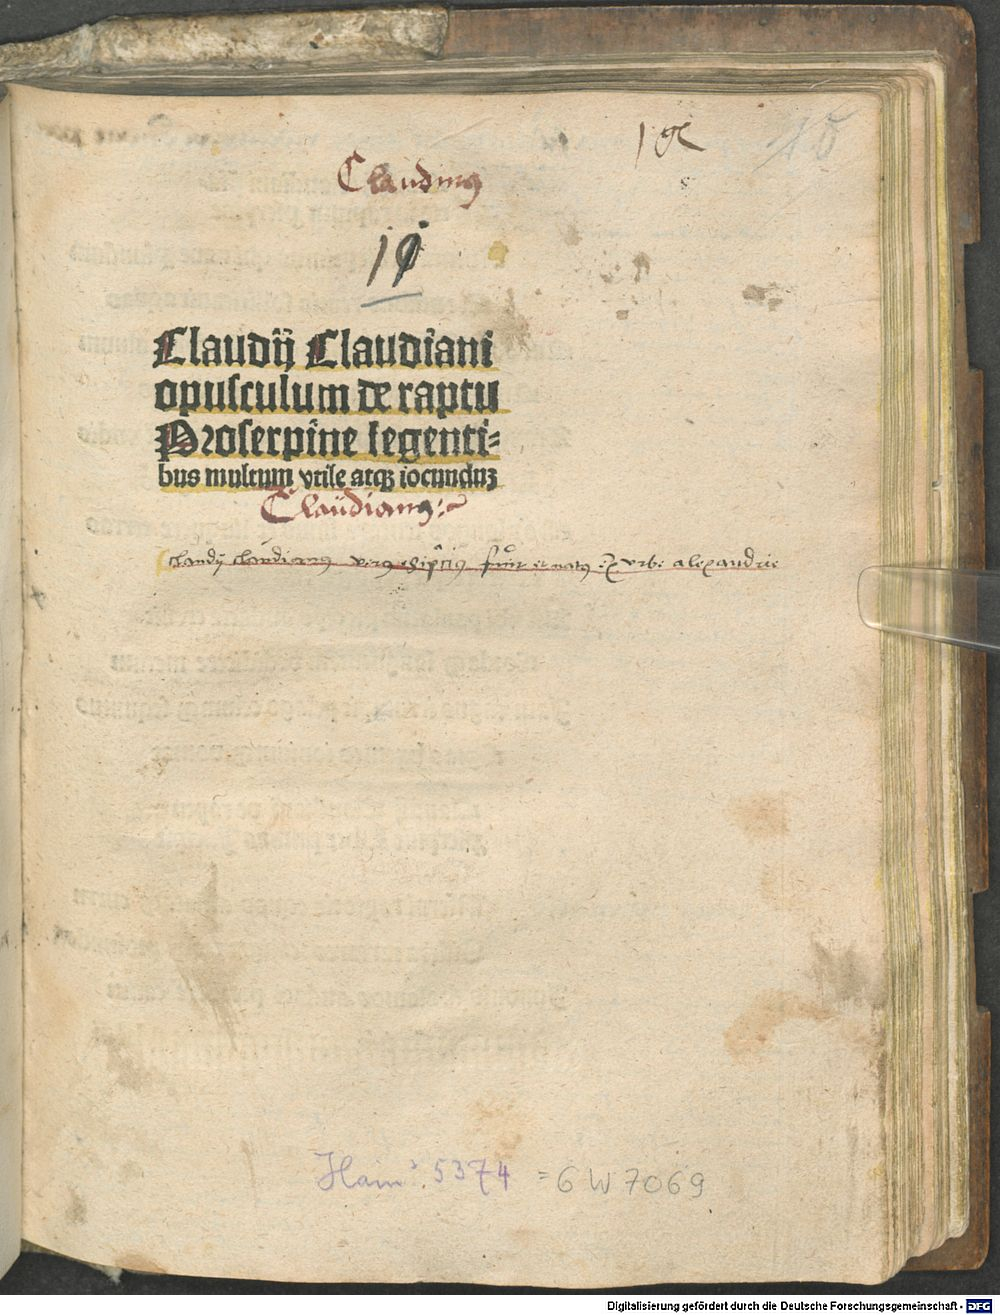 Claudius
19
Claudij Claudiani
opusculum de raptu
Proserpine legenti⸗
bus multum vtile atqꝫ iocunduꝫ
Claudianus
claudij claudianus egiptius fuit et natus ex vrbe alexandrie
Hain 5374 = GW 7069
Digitalisierung gefördert durch die Deutsche Forschungsgemeinschaft - DFG